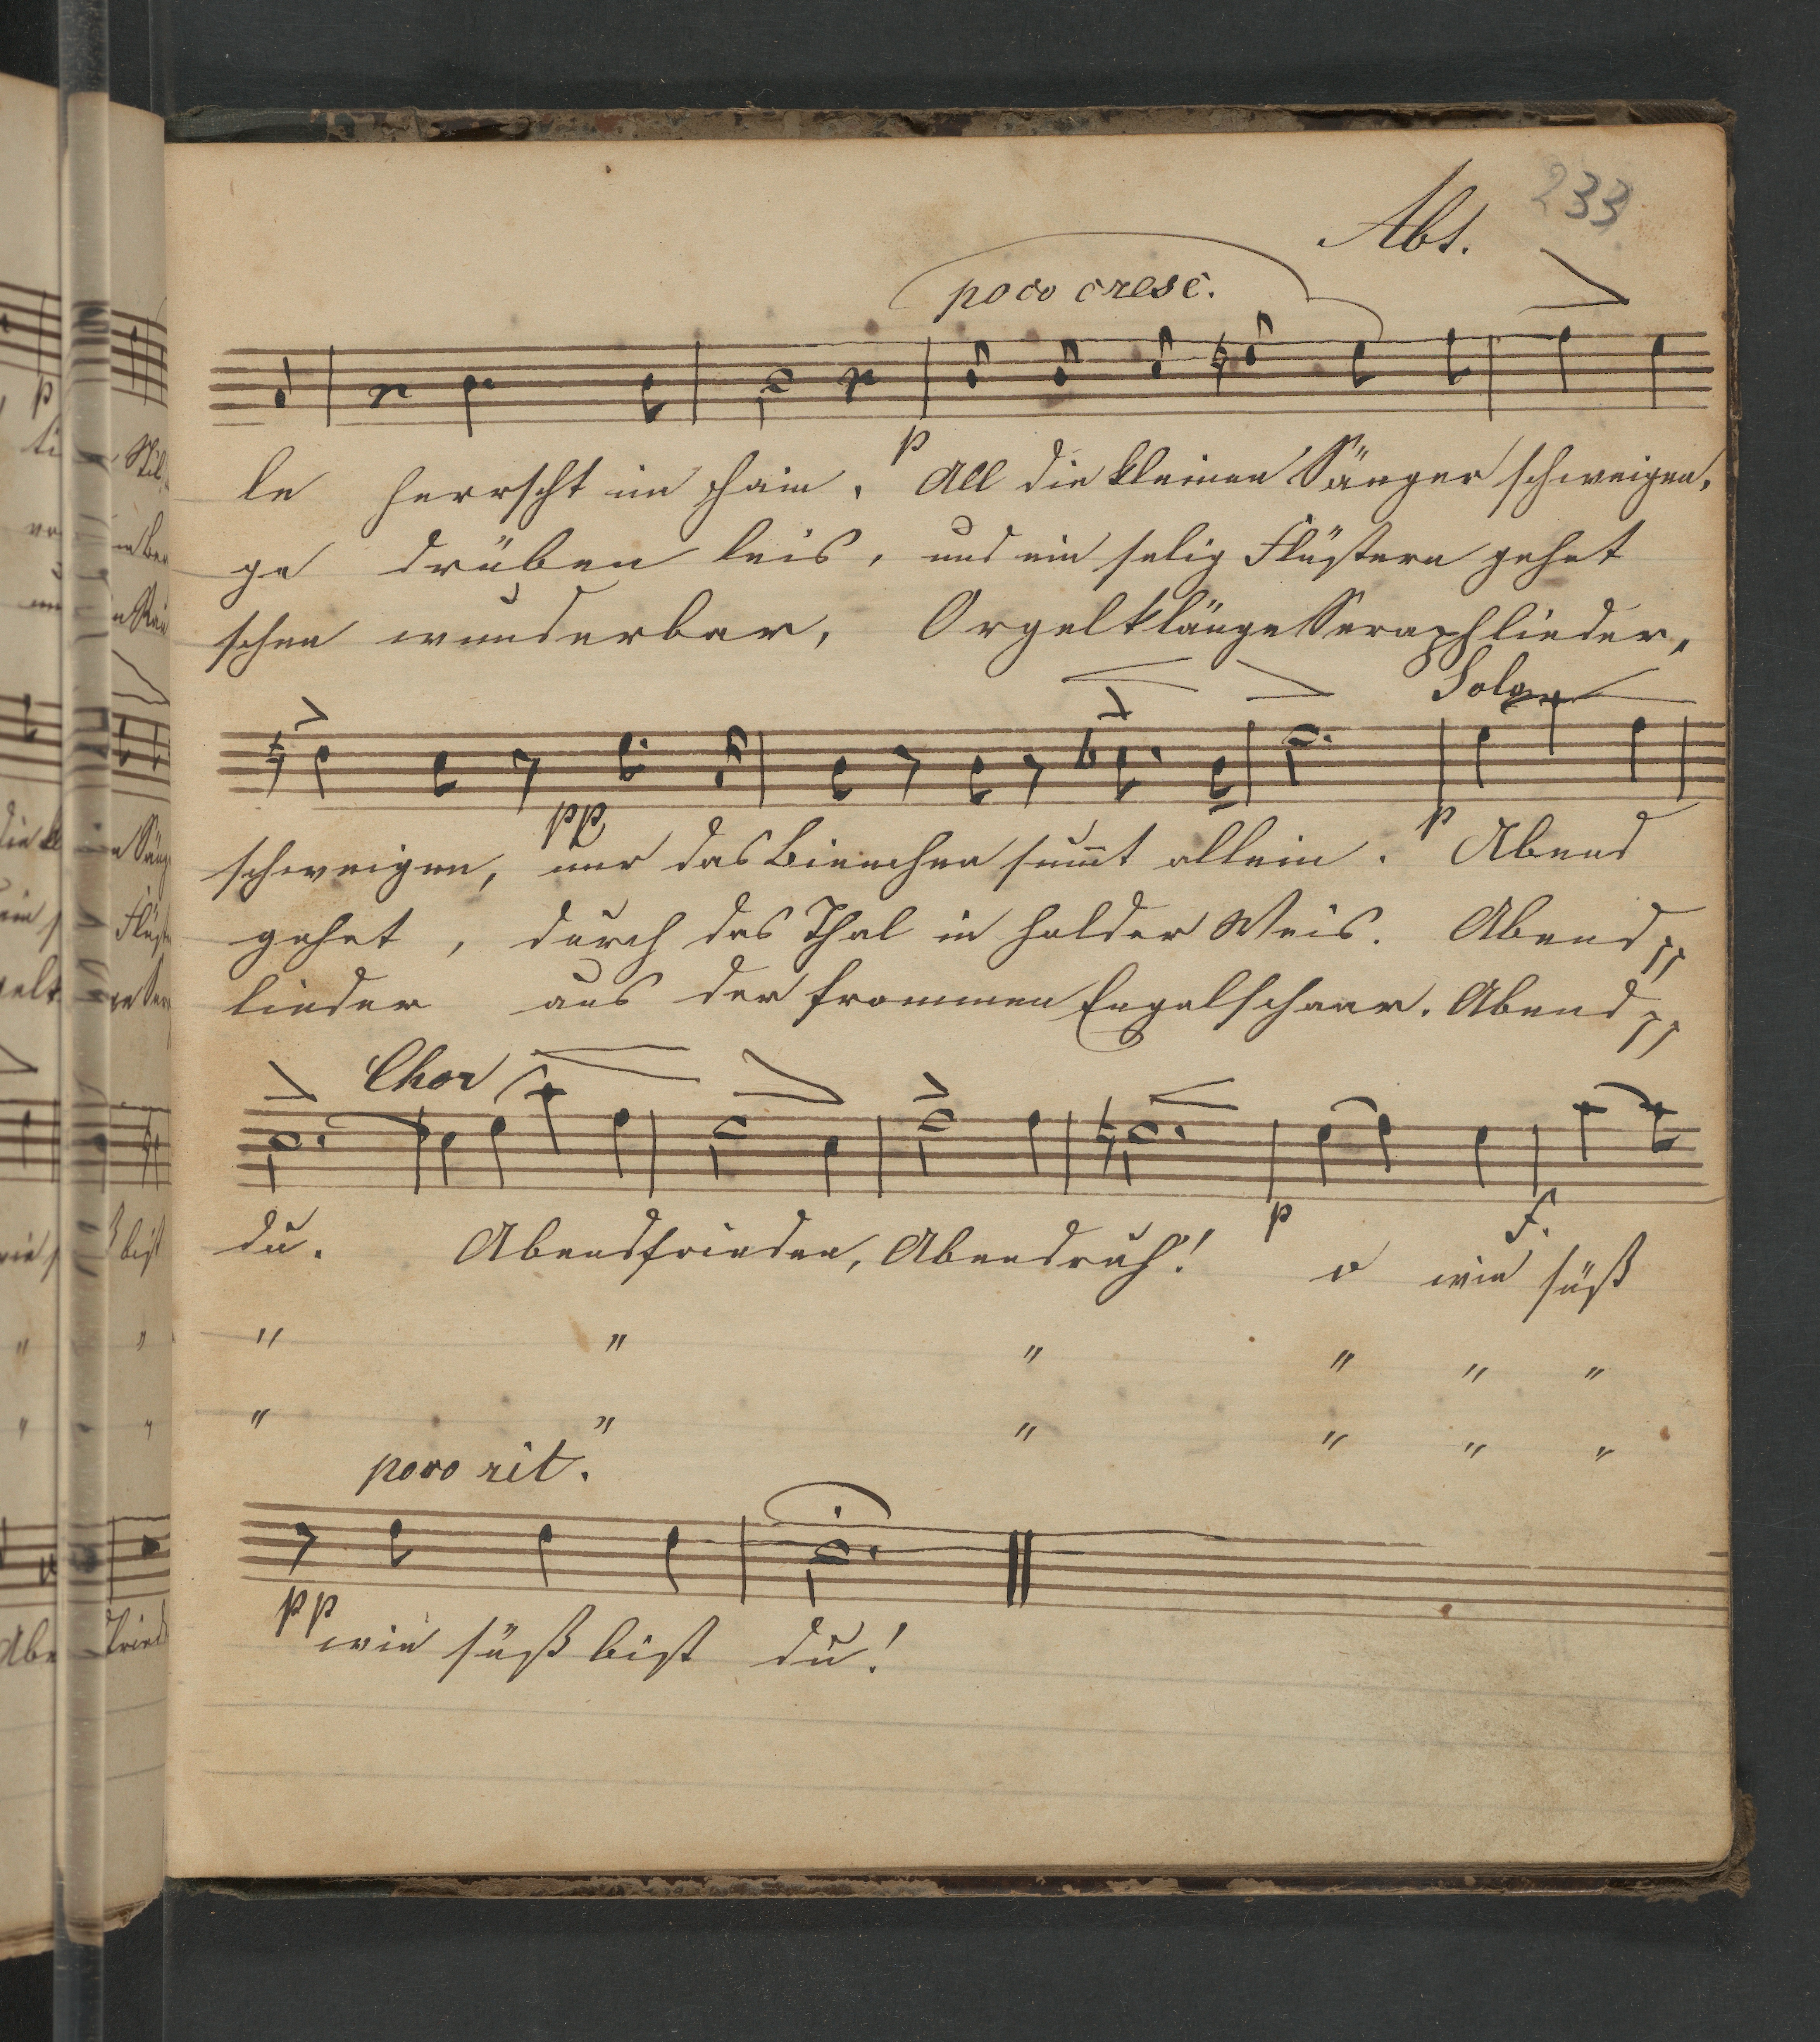 Abt. 233
poco cresc.
p
le herrscht im Hain. All die kleinen Sänger schweigen,
ge drüben leis, und ein selig Flüstern gehet
schen wunderbar, Orgelklänge Seraphlieder,
Solo
pp p
schweigen, nur das Bienchen sum̄t allein. Abend
gehet, durch das Thal in holder Weis. Abend "
lieder aus der frommen Engelschaar. Abend "
Chor
p f.
du. Abendfrieden, Abendruh! o wie süß
" " " " " "
" " " " " "
poco rit.
pp
wie süß bist du!